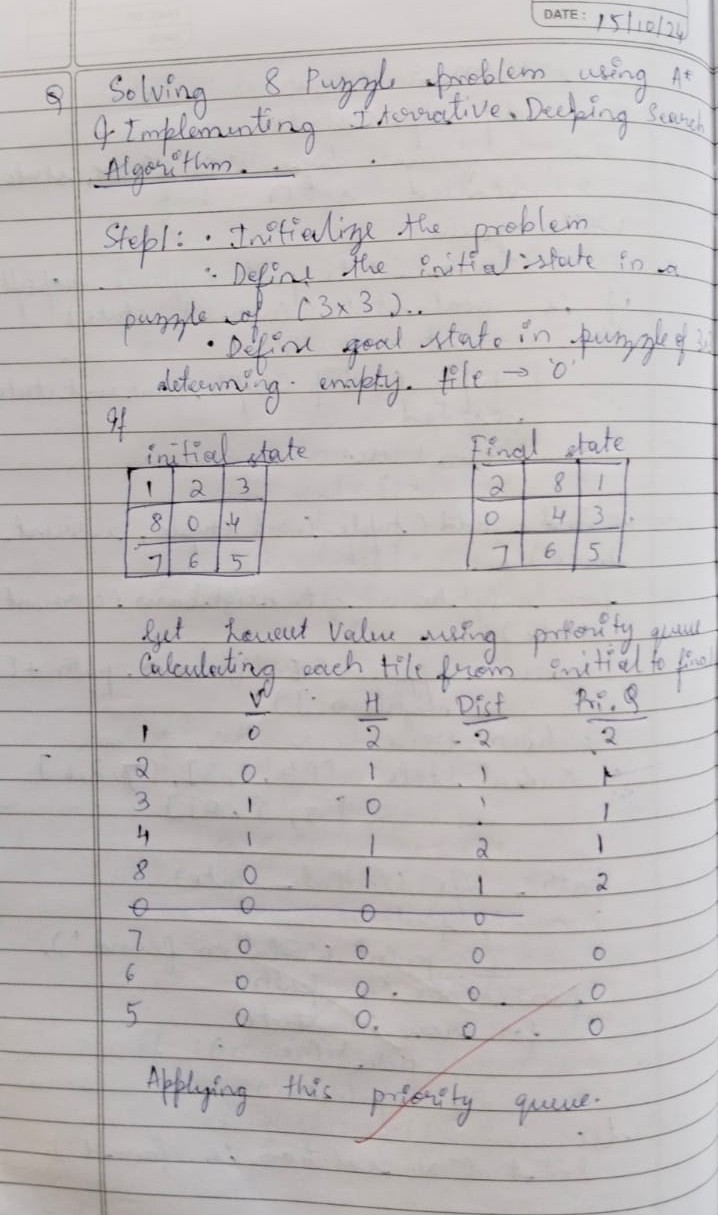 DATE: 15/10/24
Q Solving 8 Puzzle problem using A*
& Implementing Iterrative Deeping Search
Algorithm.
Step1: • Initialize the problem
• Define the initial state in a
puzzle of (3x3)..
• Define goal state in puzzle of 3x
determing empty. tile → '0'
If
initial state Final state
1 2 3 2 8 1
8 0 4 0 4 3
7 6 5 7 6 5
Get Lowest Value using priority queue
Calculating each tile from initial to final
V H Dist Pri. Q
1 0 2 2 2
2 0 1 1 1
3 1 0 1 1
4 1 1 2 1
8 0 1 1 2
0 0 0 0
7 0 0 0 0
6 0 0 0 0
5 0 0 0 0
Applying this priority queue.